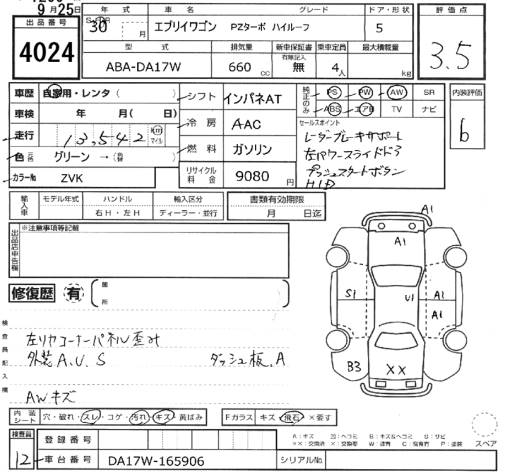 9月25日
出品番号
4024
年式
30
月
車名
エブリイワゴン
グレード
PZターボ ハイルーフ
ドア・形状
5
評価点
3.5
型式
ABA-DA17W
排気量
660 cc
新車保証書
有除記入
無
乗車定員
4人
最大積載量
kg
車歴
自家用・レンタ ( )
車検
年 月( 日)
走行
13,542
km
マイル
色
グリーン →
カラー№
ZVK
シフト
インパネAT
冷房
AAC
燃料
ガソリン
リサイクル料金
9080
円
純正のみ
PS PW AW SR
ABS エアB TV ナビ
セールスポイント
レーダーブレーキサポート
左パワースライドドア
プッシュスタートボタン
HID
内装評価
b
輸入車
モデル年式
ハンドル
右H・左H
輸入区分
ディーラー・並行
書類有効期限
月 日迄
出品店申告欄
※注意事項等記載
修復歴
有
箇所
検査員記入欄
左リヤコーナーパネル歪み
外装A.U.S
ダッシュ板.A
AWキズ
A1
A1
S1
U1
A1
A1
B3
XX
内装シート
穴・破れ・スレ・コゲ・汚れ・キズ・黄ばみ
Fガラス
キズ・飛石・×要す
スペア
検査員
12
登録番号
車台番号
DA17W-165906
シリアル№